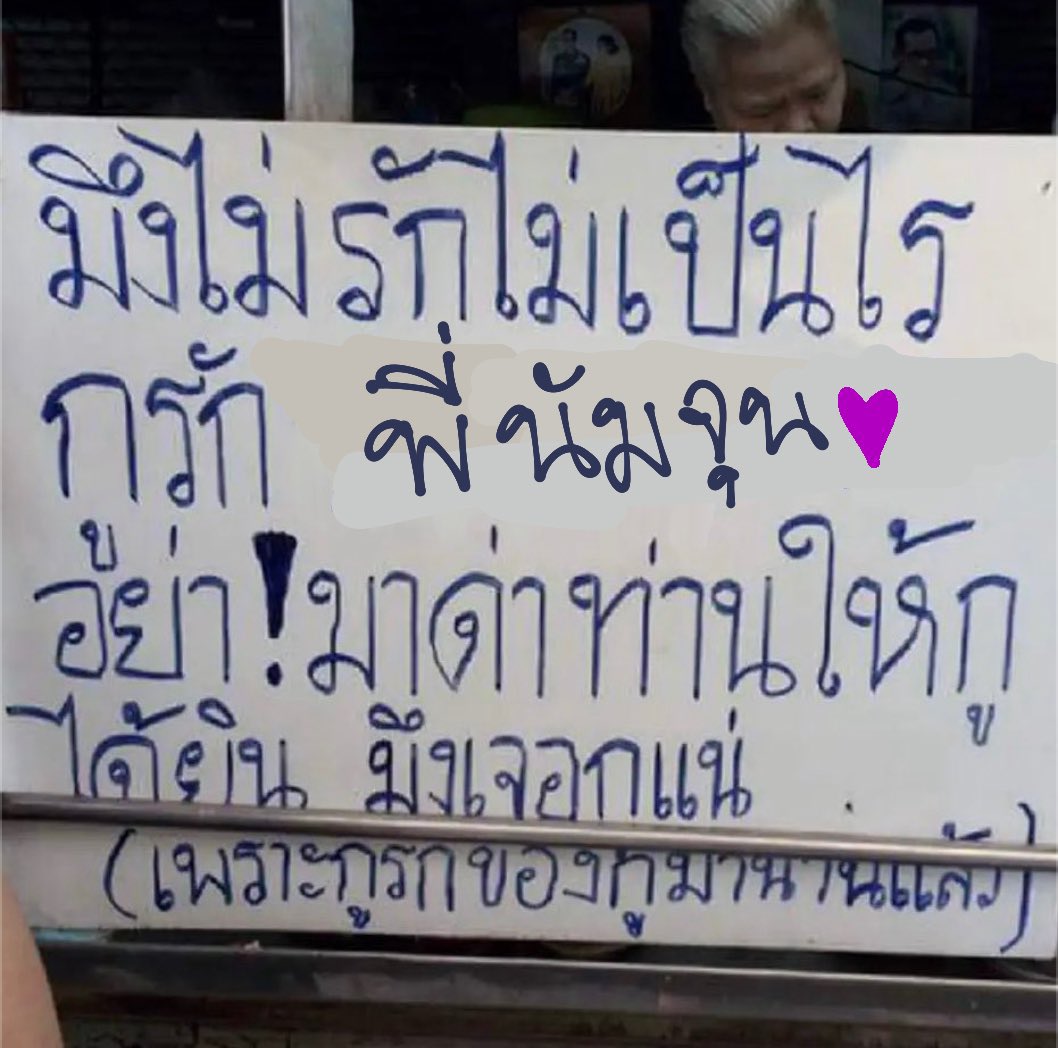 มึงไม่รักไม่เป็นไร
กูรัก พี่นัมจุน♥
อย่า!มาด่าท่านให้กู
ได้ยิน มึงเจอกูแน่
(เพราะกูรักของกูมานานแล้ว)